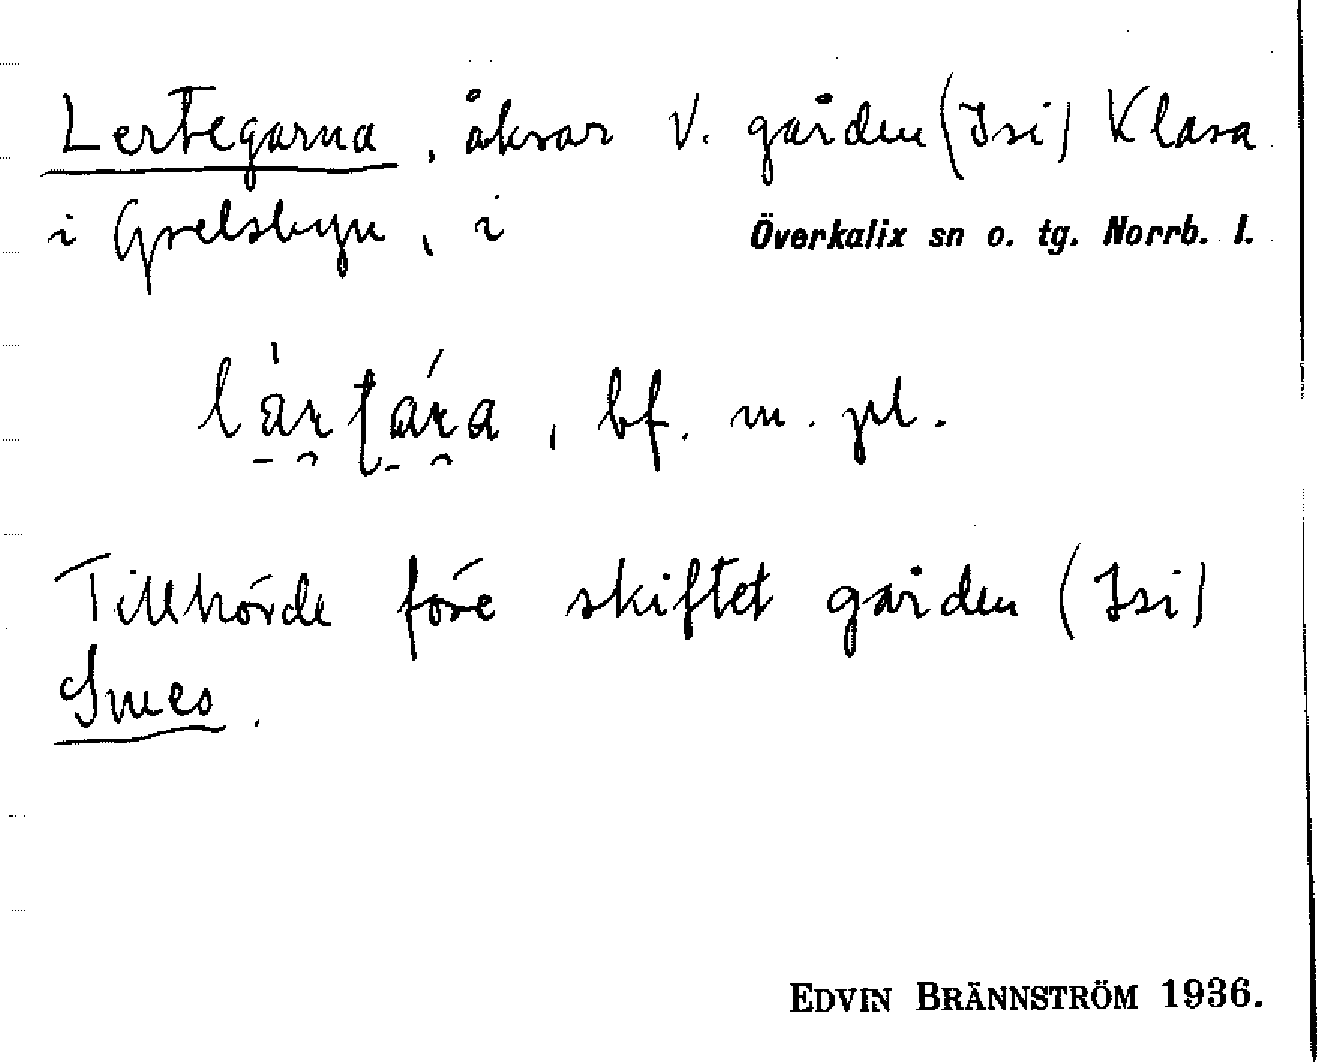 Lertegarna, åkrar V. gården (Isi) Klasa
i Grelsbyn, i Överkalix sn o. tg. Norrb. l.
lärtára, bf. m. pl.
Tillhörde före skiftet gården (Isi)
Smes.
EDVIN BRÄNNSTRÖM 1936.